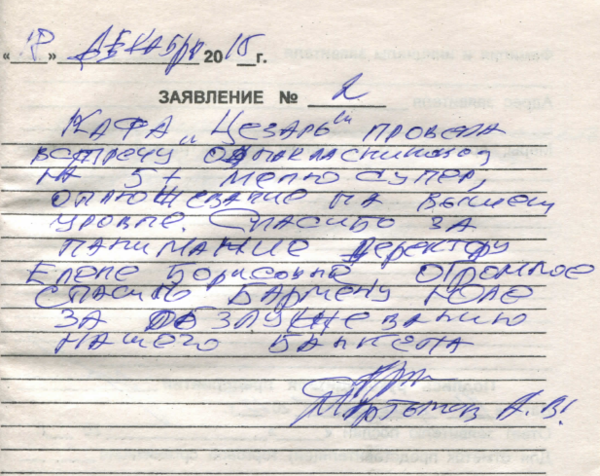 «18» ДЕКАБРЯ 2015 г.
ЗАЯВЛЕНИЕ № 2
КАФА „ЦЕЗАРЬ" ПРОВЕЛА
ВСТРЕЧУ ОДНОКЛАСНИКОВ
НА 5+ МЕНЮ СУПЕР,
НА ВЫШЕМ
УРОВНЕ. СПАСИБО ЗА
ПАНИМАНИЕ ДИРЕКТОРУ
ЕЛЕНЕ БОРИСОВНЕ ОГРОМНОЕ
СПАСИБО БАРМЕНУ ЮЛЕ
ЗА
НАШЕГО БАНКЕТА
А. В.